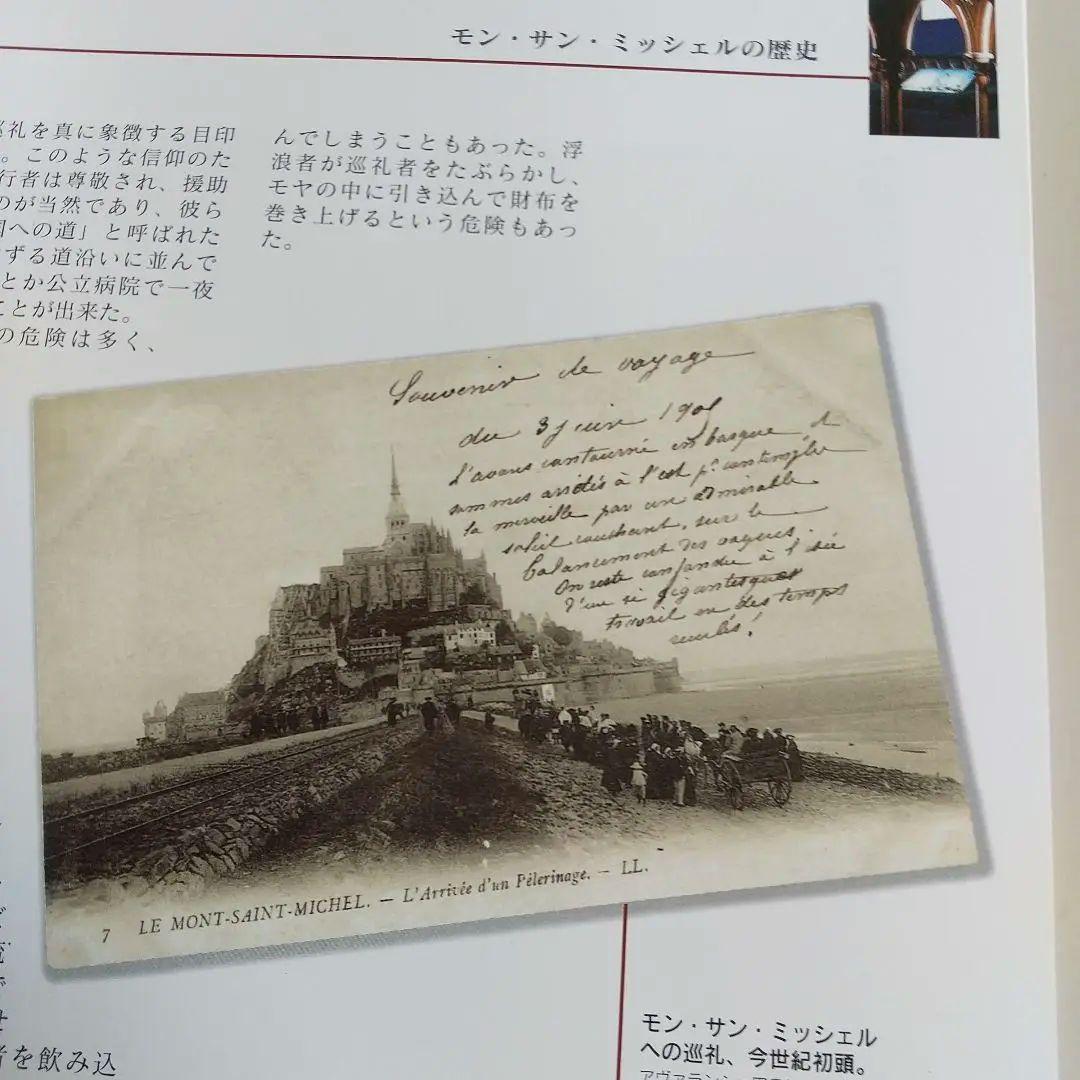 モン・サン・ミッシェルの歴史
巡礼を真に象徴する目印
。このような信仰のた
行者は尊敬され、援助
のが当然であり、彼ら
国への道」と呼ばれた
ずる道沿いに並んで
とか公立病院で一夜
ことが出来た。
の危険は多く、
んでしまうこともあった。浮
浪者が巡礼者をたぶらかし、
モヤの中に引き込んで財布を
巻き上げるという危険もあっ
た。
Souvenir de voyage
du 3 juin
L'avons contourné en barque, et
sommes arrêtés à l'est pr contempler
la merveille par un admirable
soleil couchant, sur le
balancement des vagues.
On reste confondu à l'idée
d'un si gigantesque
travail en des temps
reculés!
7 LE MONT-SAINT-MICHEL. — L'Arrivée d'un Pélerinage. — LL.
者を飲み込
モン・サン・ミッシェル
への巡礼、今世紀初頭。